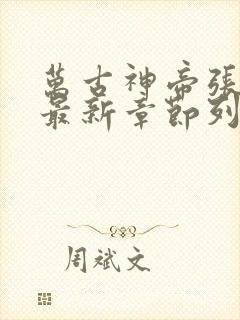 萬古神帝張
最新章節列
周斌文